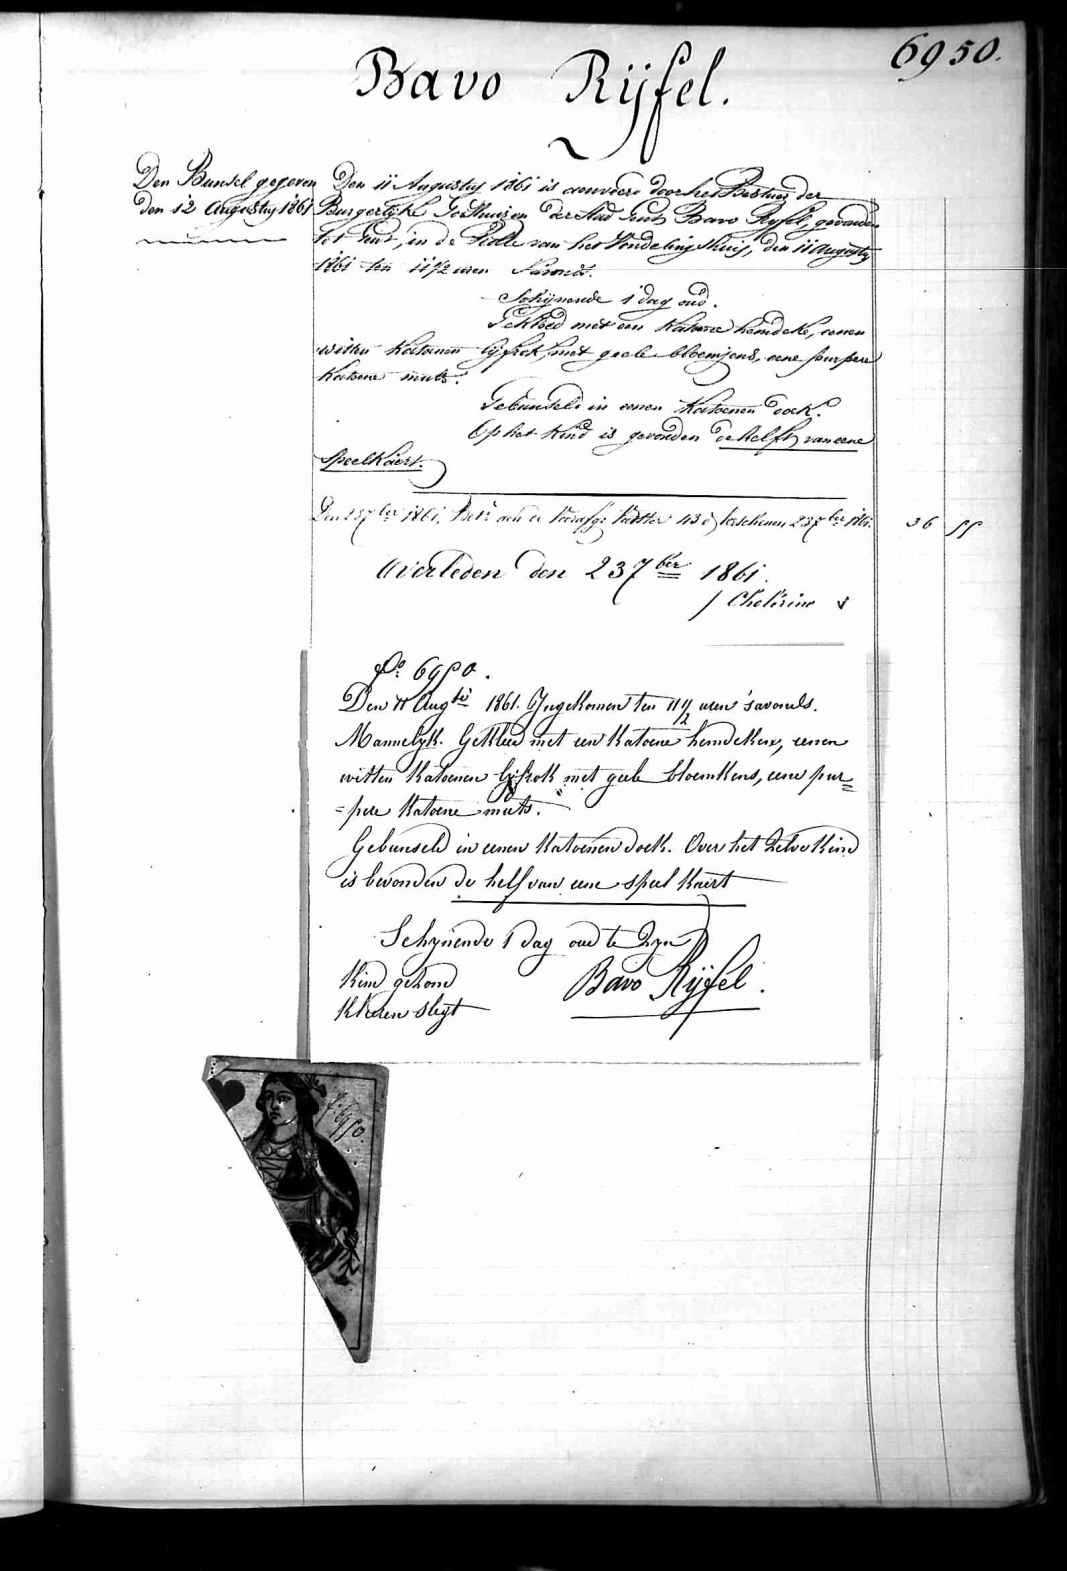 6950.
Bavo Rijfel.
Den Bunsel gegeven
den 12 Augusty 1861
Den 11 Augusty 1861 is aenveerd door het Bestuer der
Burgerlyke Godshuizen der Stad Gent, Bavo Ryfel, gevonden
tot Gent, in de Rolle van het Vondelingshuis, den 11 Augusty
1861 ten 11 1/2 uren 's avonds.
Schijnende 1 dag oud.
Gekleed met een katoene hemdeke, eenen
witten katoenen lyfrok met geele bloemjens, eene purpere
katoene muts.
Gebunseld in eenen katoenen doek.
Op het kind is gevonden de helft van eene
speelkaert.
Den 23 7ber 1861, aen de 43 23 7ber 1861. 36 55
Overleden den 23 7ber 1861.
No 6950.
Den 11 Augti 1861. Ingekomen ten 11 1/2 uren 's avonds.
Mannelyk. Gekleed met een katoene hemdeken, eenen
witten katoenen lyfrok met geele bloemkens, eene pur=
=pere katoene muts.
Gebunseld in eenen katoenen doek. Over het zelve kind
is bevonden de helf van eene speel kaert
Schynende 1 dag oud te zyn
Kind gezond
Kleeren slegt
Bavo Rijfel.
No 6950.